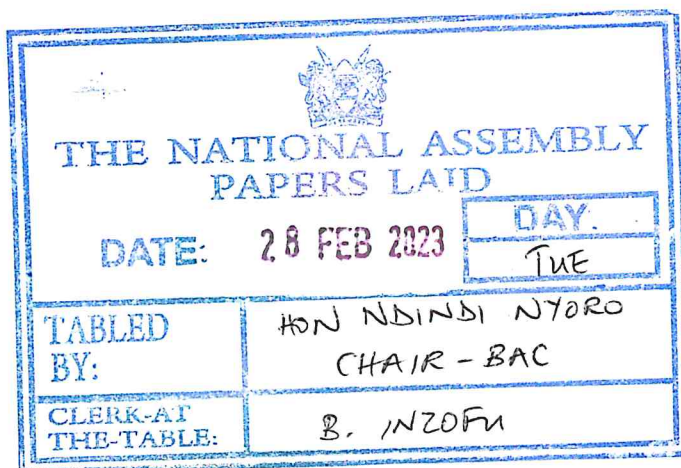 THE NATIONAL ASSEMBLY
PAPERS LAID
DATE: 28 FEB 2023
DAY.
TUE
TABLED
BY:
HON NDINDI NYORO
CHAIR - BAC
CLERK-AT
THE-TABLE:
B. INZOFU